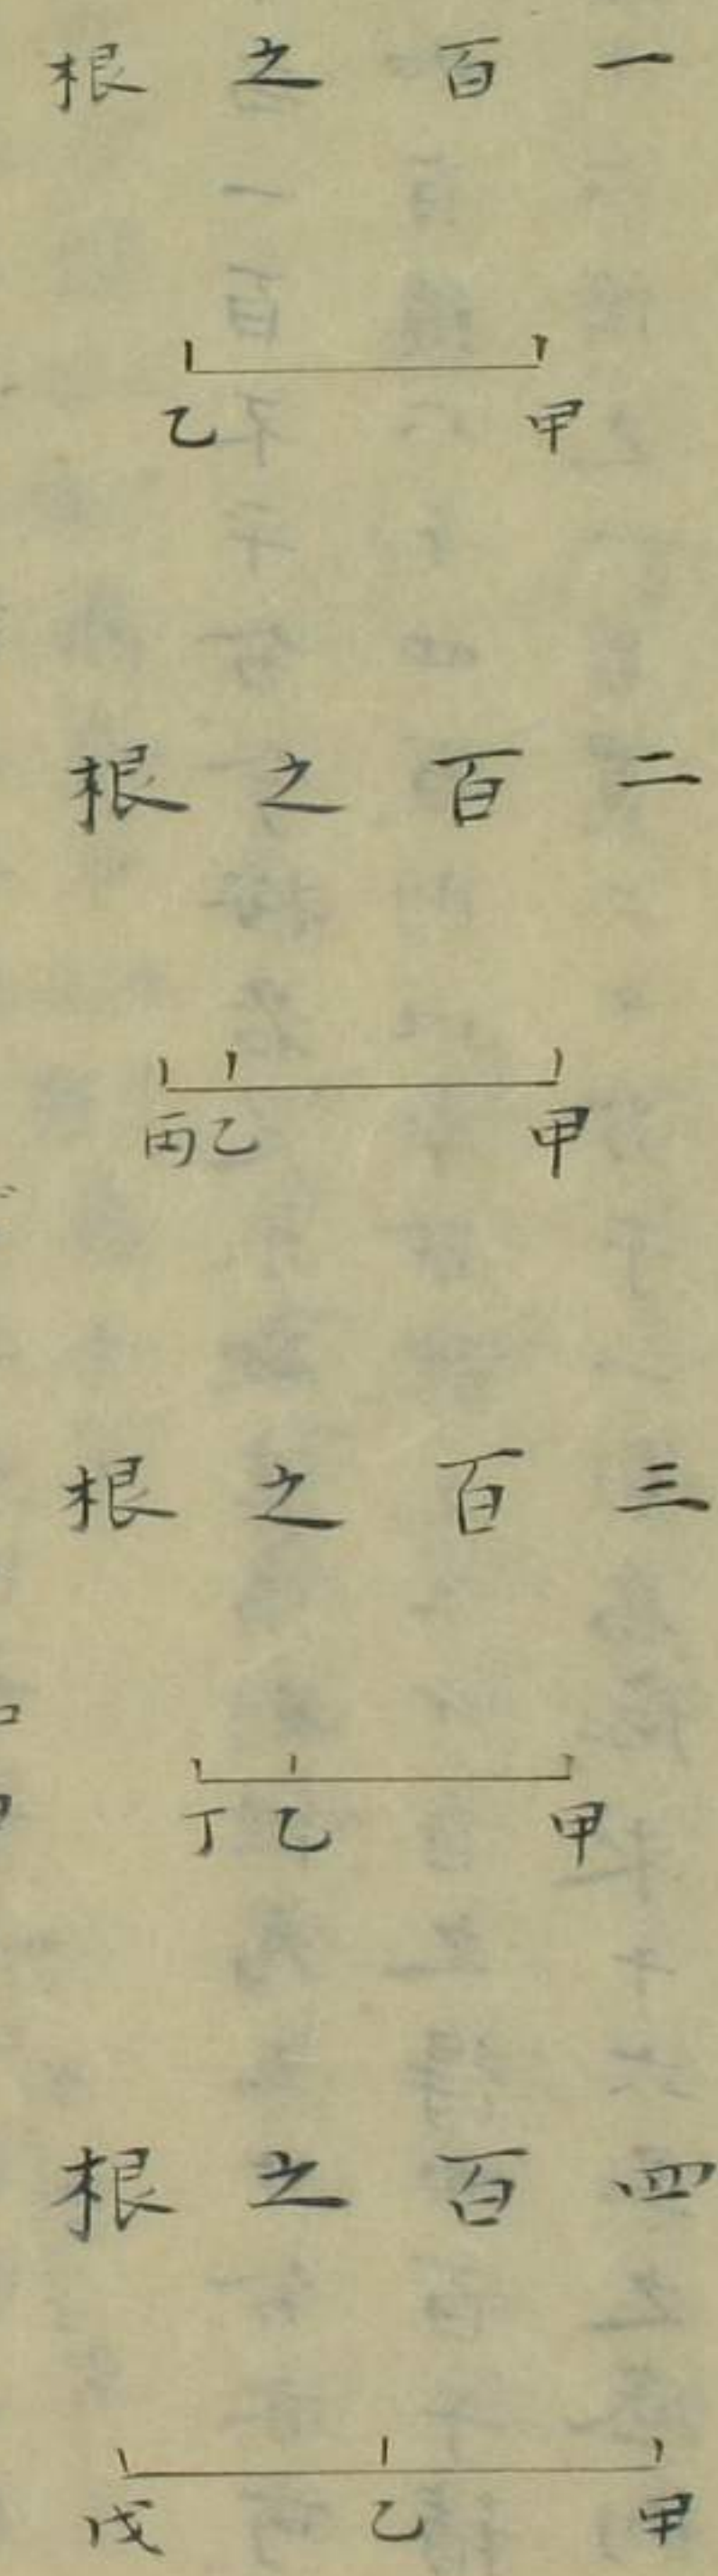 一百之根
甲乙
二百之根
甲乙丙
三百之根
甲乙丁
四百之根
甲乙戊